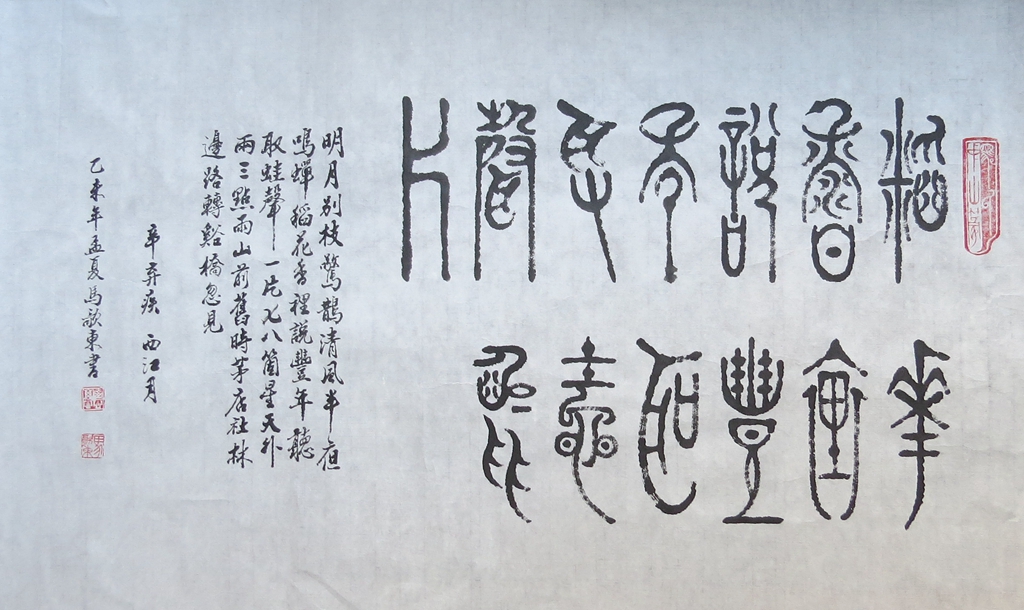 稻花
香裏
說豐
年聽
取蛙
聲一
片
明月別枝驚鵲清風半夜
鳴蟬稻花香裡說豐年聽
取蛙聲一片七八箇星天外
兩三點雨山前舊時茅店社林
邊路轉谿橋忽見
辛弃疾 西江月
乙未年孟夏馬歌東書